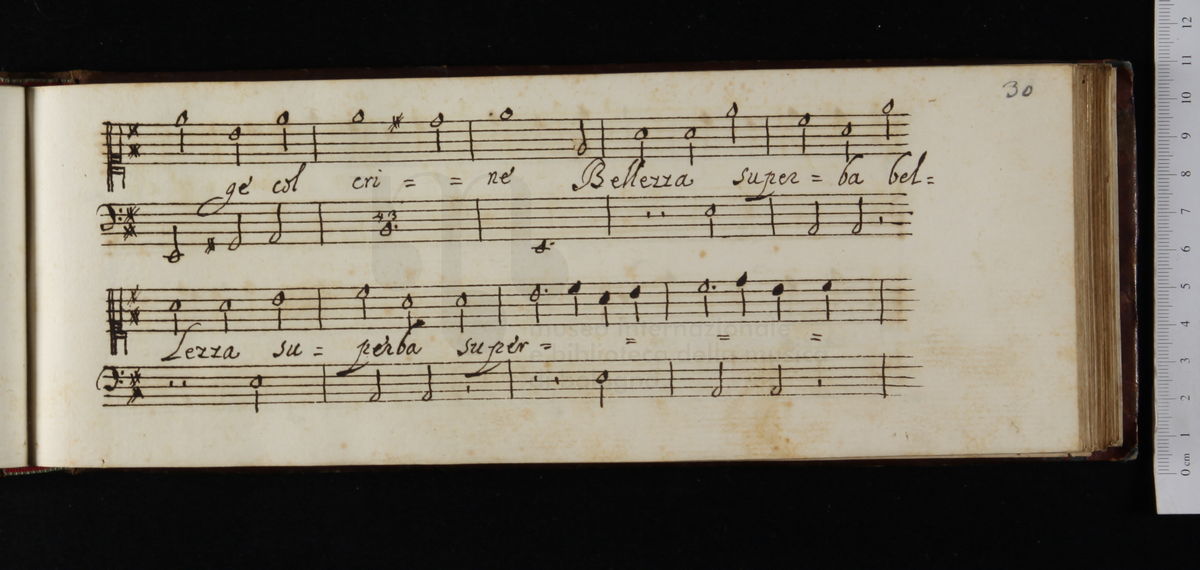 30
ge col cri = = ne Bellezza super = ba bel=
4 3
lezza su = perba super = = = =
museo internazionale
e biblioteca della musica
12
11
10
9
8
7
6
5
4
3
2
1
0 cm